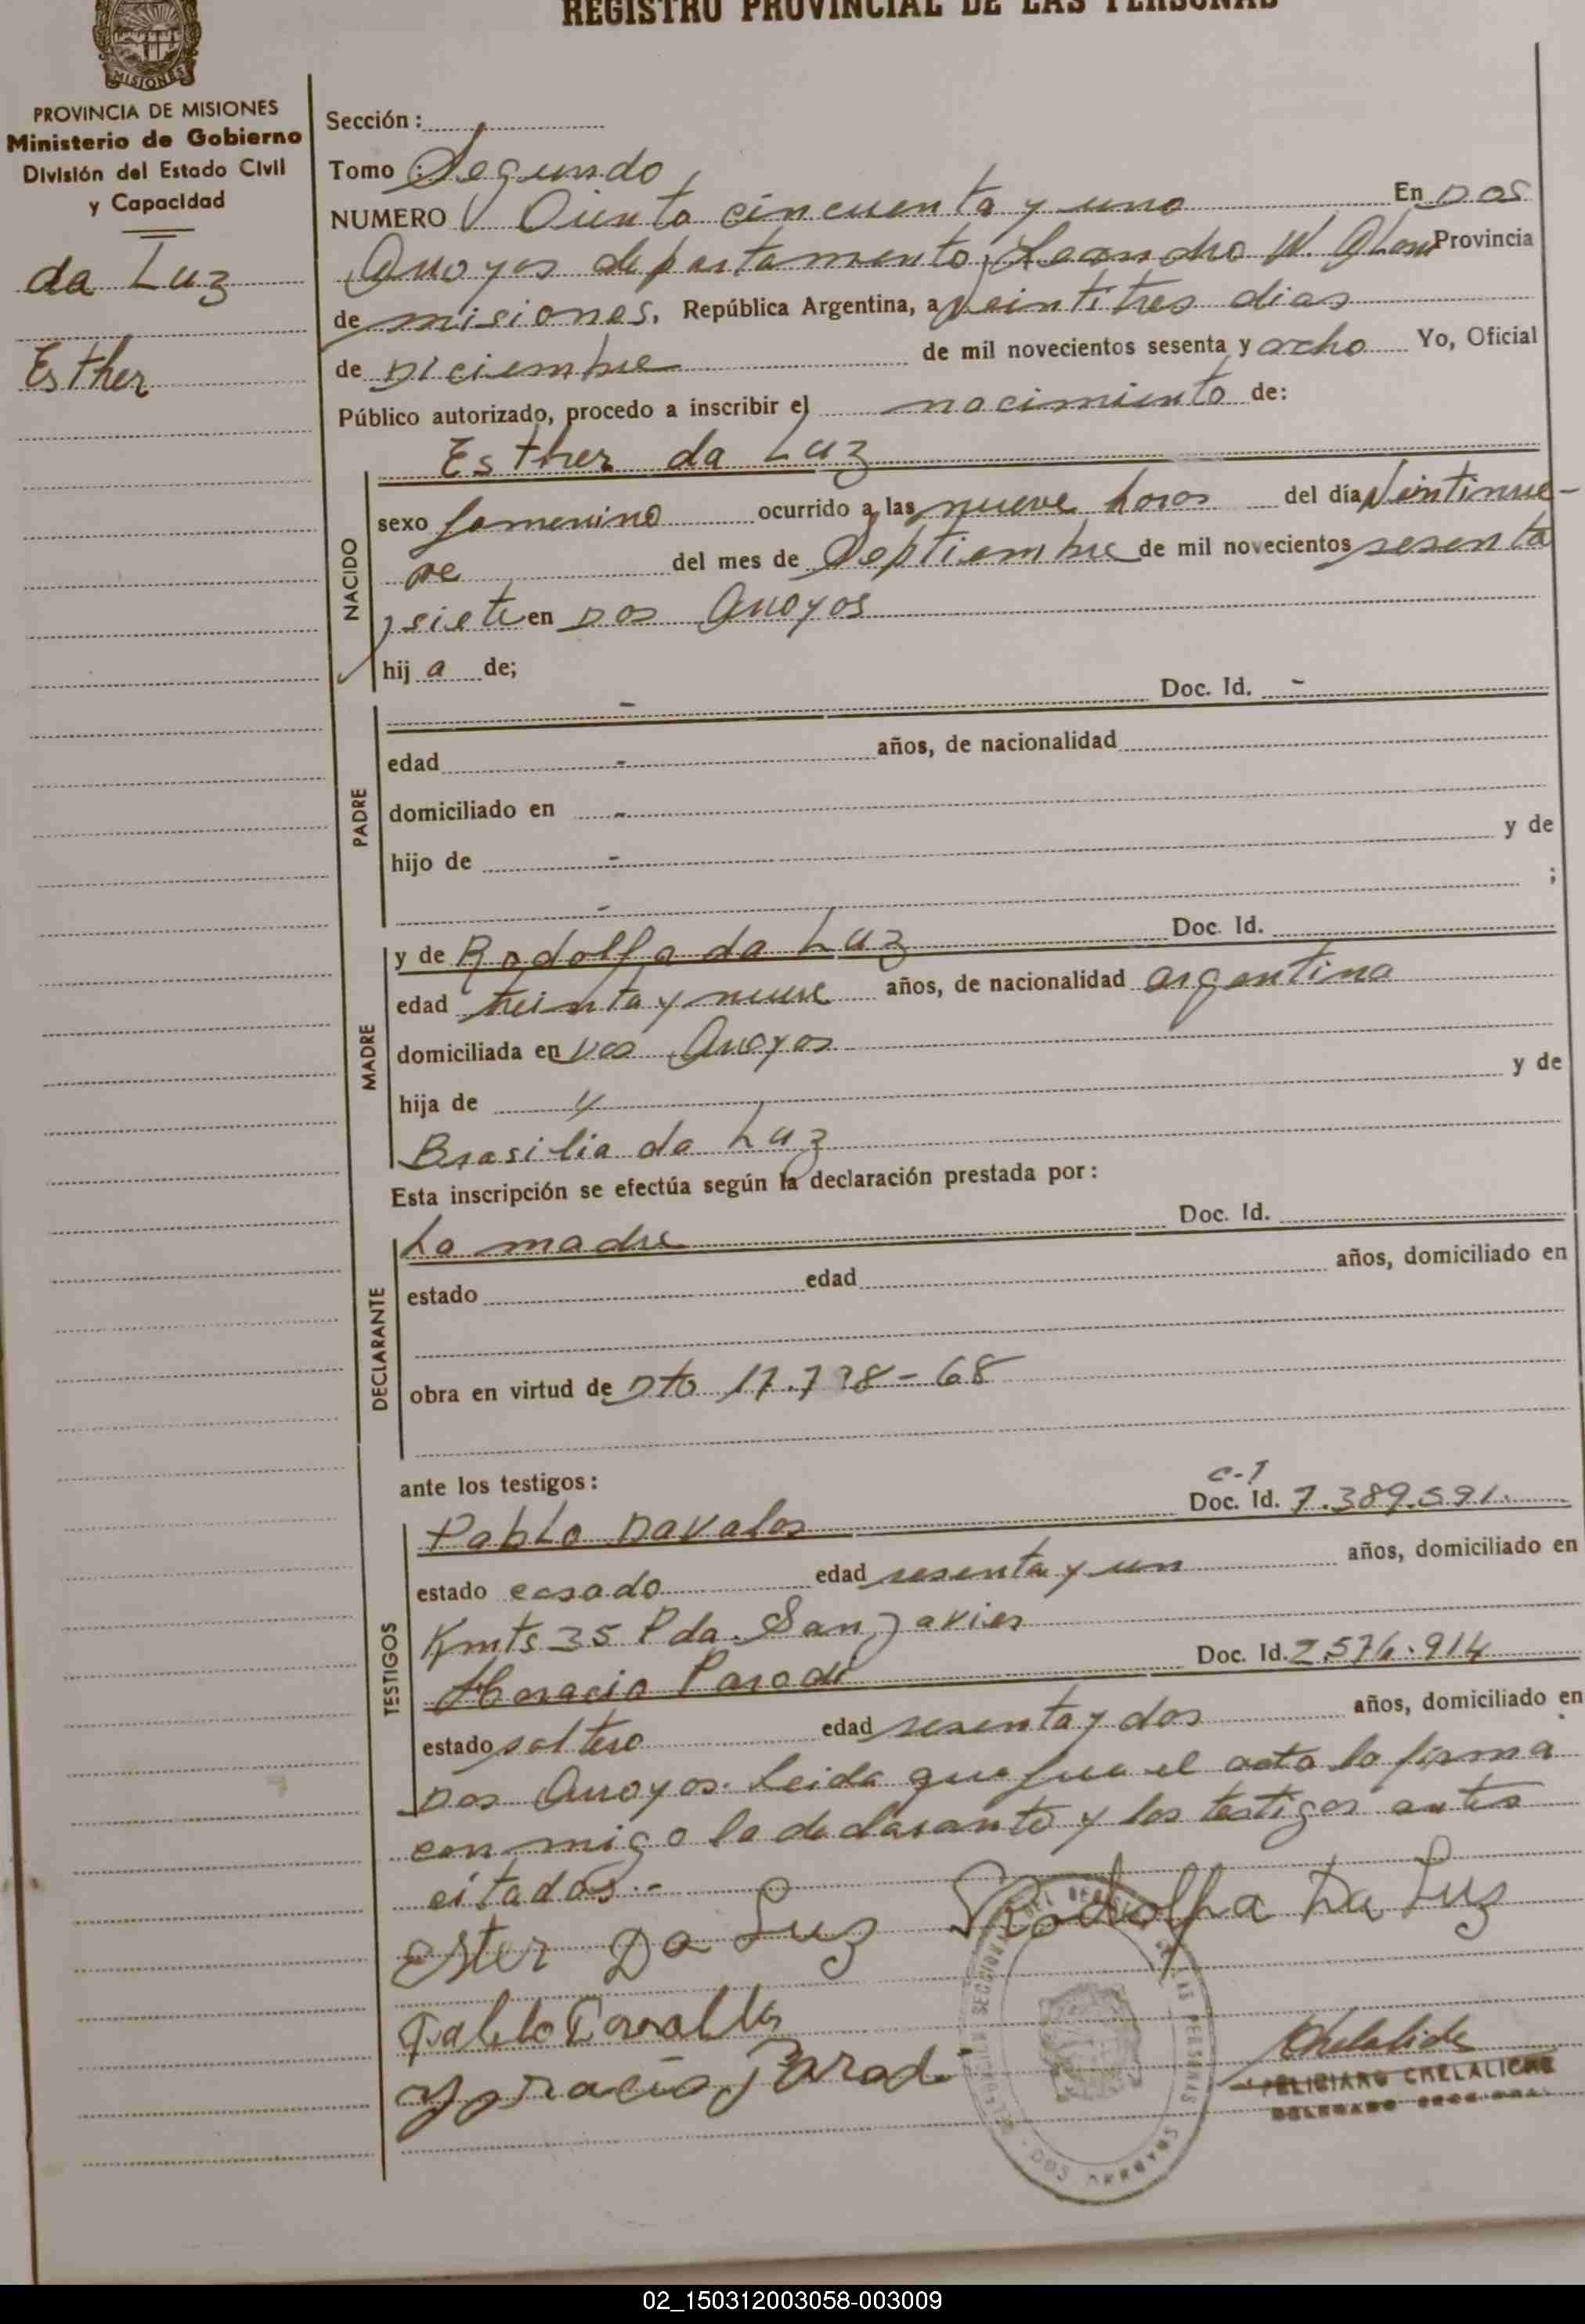 REGISTRO PROVINCIAL DE LAS PERSONAS
MISIONES
PROVINCIA DE MISIONES
Ministerio de Gobierno
División del Estado Civil
y Capacidad
da Luz
Esther
Sección:
Tomo: Segundo
NUMERO Ciento cincuenta y uno En Dos
Arroyos departamento Leandro N. Alem Provincia
de misiones, República Argentina, a veintitres dias
de Diciembre de mil novecientos sesenta y ocho Yo, Oficial
Público autorizado, procedo a inscribir el nacimiento de:
Esther da Luz
NACIDO
sexo femenino ocurrido a las nueve horos del día Veintinue-
ve del mes de Septiembre de mil novecientos sesenta
y siete en Dos Arroyos
hij a de;
PADRE
- Doc. Id. -
edad - años, de nacionalidad
domiciliado en -
hijo de - y de
- ;
MADRE
y de Rodolfa da Luz Doc. Id.
edad treinta y nueve años, de nacionalidad argentina
domiciliada en Dos Arroyos
hija de y de
Brasilia da Luz
Esta inscripción se efectúa según la declaración prestada por:
DECLARANTE
La madre Doc. Id.
estado edad años, domiciliado en
obra en virtud de Dto 17.738-68
ante los testigos:
TESTIGOS
C-I
Pablo Davalos Doc. Id. 7.389.591.
estado casado edad sesenta y un años, domiciliado en
Kmts 35 Pda. San Javier
Horacio Parodi Doc. Id. 2.576.914
estado soltero edad sesenta y dos años, domiciliado en
Dos Arroyos. Leida que fue el acta la firma
conmigo la declarante y los testigos antes
citados.-
Ester Da Luz Rodolfa Da Luz
Pablo Davalos
Horacio Parodi
Chelaliche
FELICIANO CHELALICHE
DELEGADO SECCIONAL
DOS ARROYOS
02_150312003058-003009